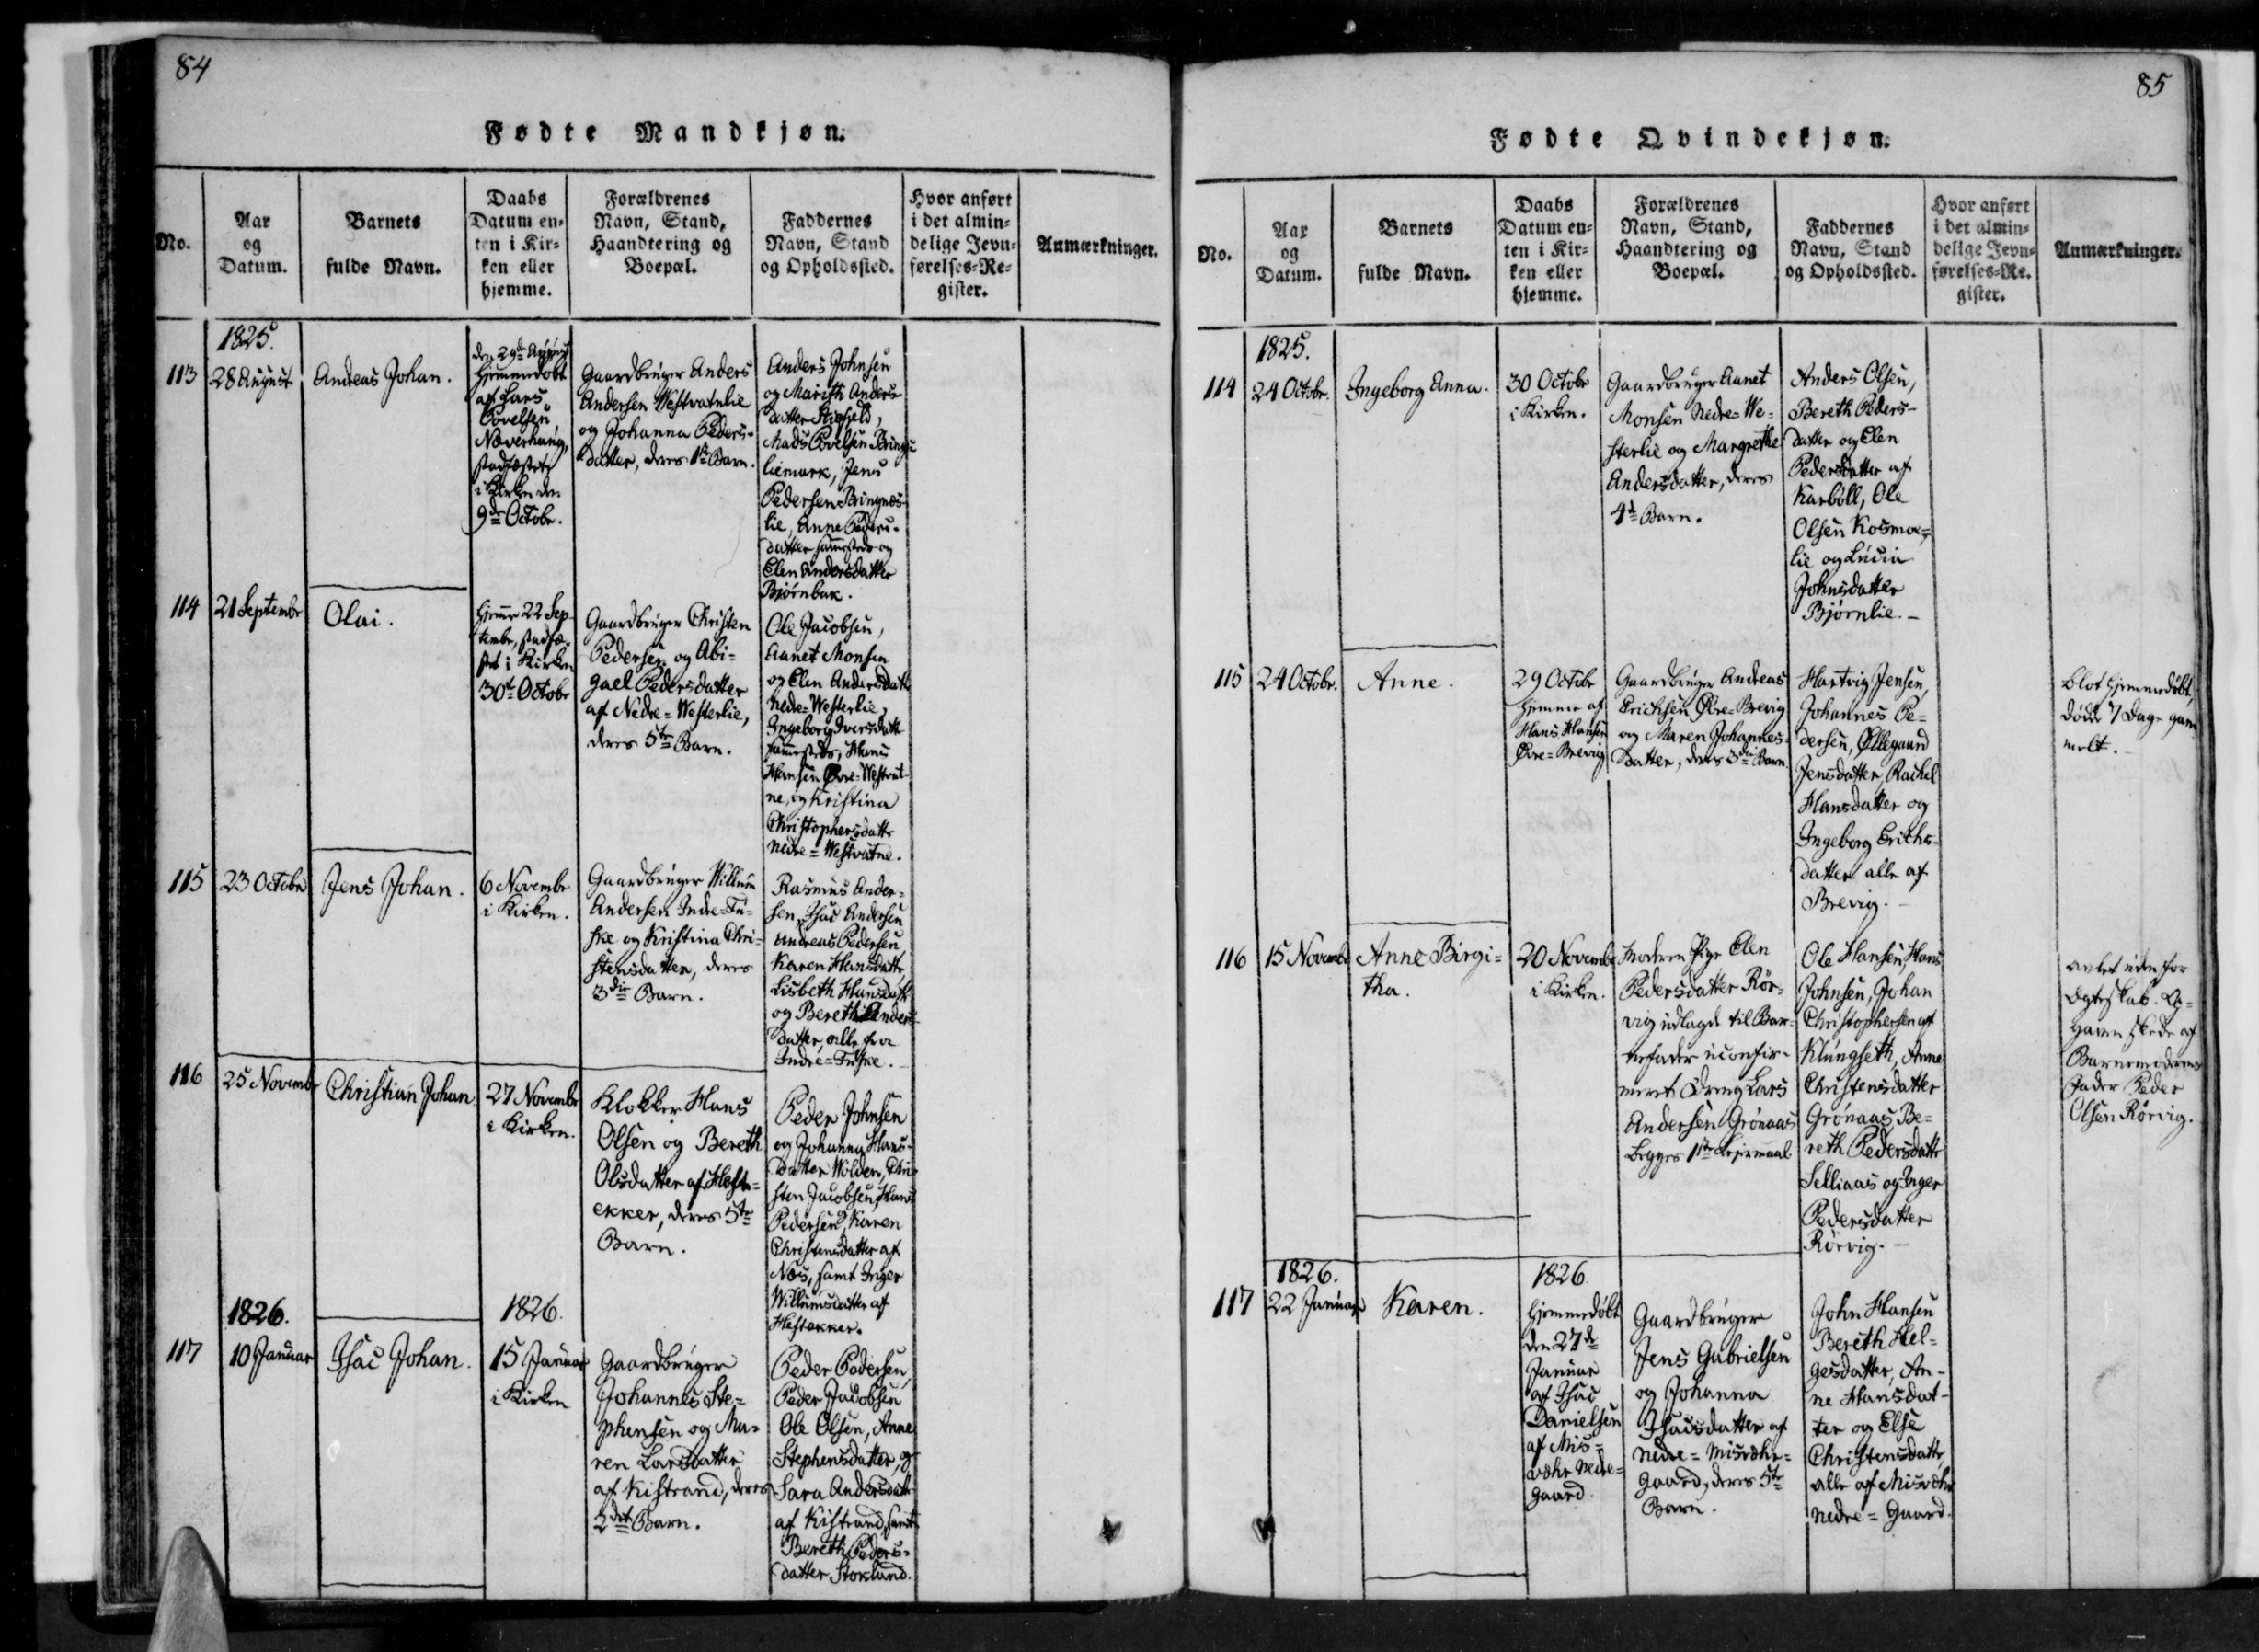 84
Fødte Mandkjøn.
No.
Aar
og
Datum.
Barnets
fulde Navn.
Daabs
Datum en-
ten i Kir-
ken eller
hjemme.
Forældrenes
Navn, Stand,
Haandtering og
Boepæl.
Faddernes
Navn, Stand
og Opholdssted.
Hvor anført
i det almin-
delige Jevn-
førelses-Re-
gister.
Anmærkninger.
1825.
113
28 August
Andreas Johan.
den 29de August
hjemmedøbt
af Lars
Povelsen,
Næverhaug,
stadfæstet
i Kirken den
9de Octobr.
Gaardbruger Anders
Andersen Westvatnlie
og Johanna Peders-
datter, deres 1te Barn.
Anders Johnsen
og Marith Anders-
datter Stiefjeld,
Mads Povelsen Brings-
liemark, Jens
Pedersen Bringnes-
lie, Anne Peders-
datter sammesteds og
Elen Andersdatter
Bjørnbak.
114
21 Septembr
Olai.
hjemme 22 Sep-
tembr, stadfæ-
stet i Kirken
30te Octobr
Gaardbruger Christen
Pedersen og Abi-
gael Pedersdatter
af Nedre=Westerlie,
deres 5te Barn.
Ole Jacobsen,
Aanet Monsen
og Elen Andersdattr
Nedre=Westerlie,
Ingeborg Iversdattr
sammesteds, Hans
Hansen Øvre=Westvat-
ne, og Kristina
Christophersdattr
Nedre=Westvatne.
115
23 Octobr
Jens Johan.
6 Novembr
i Kirken.
Gaardbruger Willum
Andersen Indre=Fu-
ske og Kristina Chri-
stensdatter, deres
3die Barn.
Rasmus Ander-
sen, Isac Andersen
Andreas Pedersen
Karen Hansdattr
Lisbeth Hansdatt
og Bereth Anders-
datter, alle fra
Indre=Fuske.
116
25 Novembr
Christian Johan
27 Novembr
i Kirken.
Klokker Hans
Olsen og Bereth
Olsdatter af Hest-
ekker, deres 5te
Barn.
Peder Johnsen
og Johanna Hans-
datter Wolden, Chri-
sten Jacobsen, Hans
Pedersen, Karen
Christensdatter af
Næs, samt Inger
Willumsdatter af
Hestekker.
1826.
117
10 Januar
Isac Johan.
1826.
15 Januar
i Kirken
Gaardbruger
Johannes Ste-
phensen og Ma-
ren Larsdatter
af Kistrand, deres
2det Barn.
Peder Pedersen,
Peder Jacobsen
Ole Olsen, Anne
Stephensdatter, og
Sara Andersdattr
af Kistrand, samt
Bereth Peders-
datter Stoklund.
85
Fødte Qvindekjøn.
No.
Aar
og
Datum.
Barnets
fulde Navn.
Daabs
Datum en-
ten i Kir-
ken eller
hjemme.
Forældrenes
Navn, Stand,
Haandtering og
Boepæl.
Faddernes
Navn, Stand
og Opholdssted.
Hvor anført
i det almin-
delige Jevn-
førelses-Re-
gister.
Anmærkninger.
1825.
114
24 Octobr.
Ingeborg Anna.
30 Octobr
i Kirken.
Gaardbruger Aanet
Monsen Nedre=We-
sterlie og Margrethe
Andersdatter, deres
4de Barn.
Anders Olsen,
Bereth Peders-
datter og Elen
Pedersdatter af
Karbøll, Ole
Olsen Kosmoe-
lie og Lucia
Johnsdatter
Bjørnlie.
115
24 Octobr.
Anne.
29 Octobr
hjemme af
Hans Hansen
Øvre=Brevig
Gaardbruger Andreas
Erichsen Øvre=Brevig
og Maren Johannes-
datter, deres 3die Barn.
Hartvig Jensen,
Johannes Pe-
dersen, Øllegaard
Jensdatter, Rachel
Hansdatter og
Ingeborg Erichs-
datter alle af
Brevig.
blot hjemmedøbt,
døde 7 Dage gam-
melt.
116
15 Novembr
Anne Birgi-
tha.
20 Novembr
i Kirken.
Moderen Pige Elen
Pedersdatter Rør-
vig udlagde til Bar-
nefader uconfir-
meret Dreng Lars
Andersen Grønaas
Begges 1ste Leiermaal
Ole Hansen, Hans
Johnsen, Johan
Christophersen af
Klungseth, Anne
Christensdatter
Grønaas, Be-
reth Pedersdattr
Selliaas og Inger
Pedersdatter
Rørvig.
avlet uden for
Ægteskab.
skede af
Barnemoderens
Fader Peder
Olsen Rørvig.
1826.
117
22 Januar
Karen.
1826.
hjemmedøbt
den 27de
Januar
af Isac
Danielsen
af Mis-
vær Nedre-
gaard.
Gaardbruger
Jens Gabrielsen
og Johanna
Isacsdatter af
Nedre=Misvær-
gaard, deres 5te
Barn.
John Hansen
Bereth Hel-
gesdatter, An-
ne Hansdat-
ter og Else
Christensdattr
alle af Misvær
Nedre=Gaard.